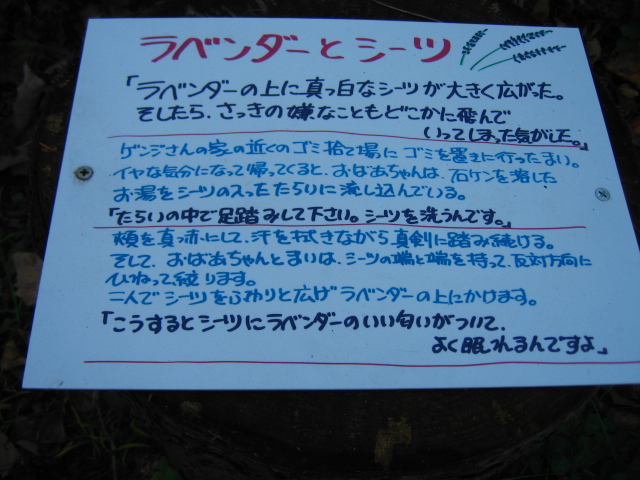 ラベンダーとシーツ
「ラベンダーの上に真っ白なシーツが大きく広がった。
そしたら、さっきの嫌なこともどこかに飛んで
いってしまった気がした。」
ゲンジさんの家の近くのゴミ拾て場に ゴミを置きに行ったまい。
イヤな気分になって帰ってくると、おばあちゃんは、石ケンを溶した
お湯をシーツの入ったたらいに流し込んでいる。
「たらいの中で足踏みして下さい。シーツを洗うんです。」
頬を真っ赤にして、汗を拭きながら真剣に踏み続ける。
そして、おばあちゃんとまいは、シーツの端と端を持って、反対方向に
ひねって絞ります。
二人でシーツをふわりと広げラベンダーの上にかけます。
「こうするとシーツにラベンダーのいい匂いがついて、
よく眠れるんですよ」